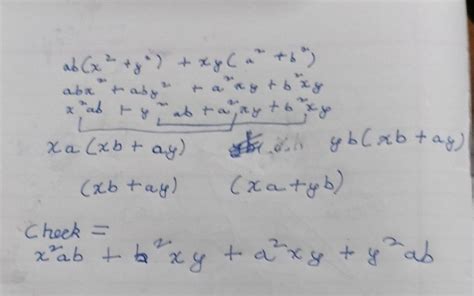 ab(x² + y²) + xy(a² + b²)
abx² + aby² + a²xy + b²xy
x²ab + y²ab + a²xy + b²xy
xa(xb + ay) yb(xb + ay)
(xb + ay) (xa + yb)
check =
x²ab + b²xy + a²xy + y²ab